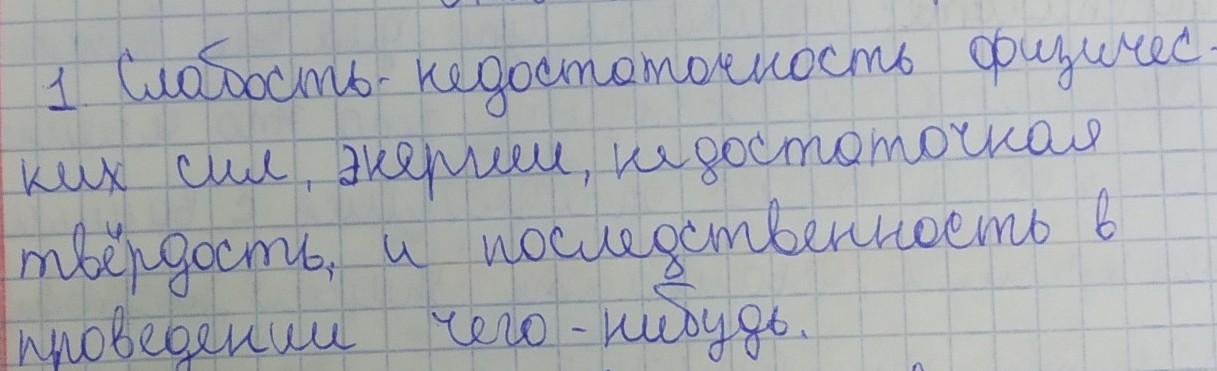 1. Слабость- недостаточность физичес-
ких сил, энергии, недостаточная
твёрдость, и последственность в
проведении чего-нибудь.